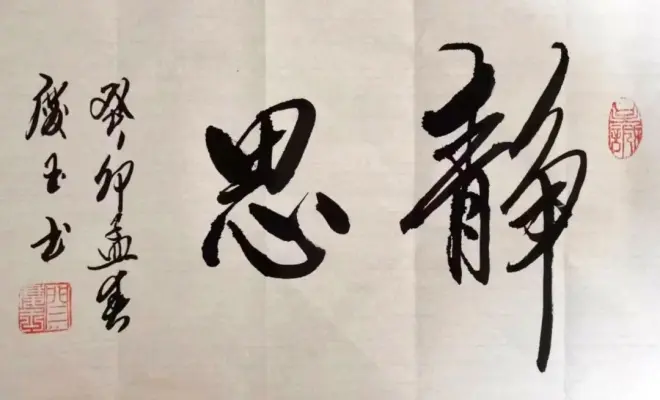 静思
癸卯孟春
庆玉书